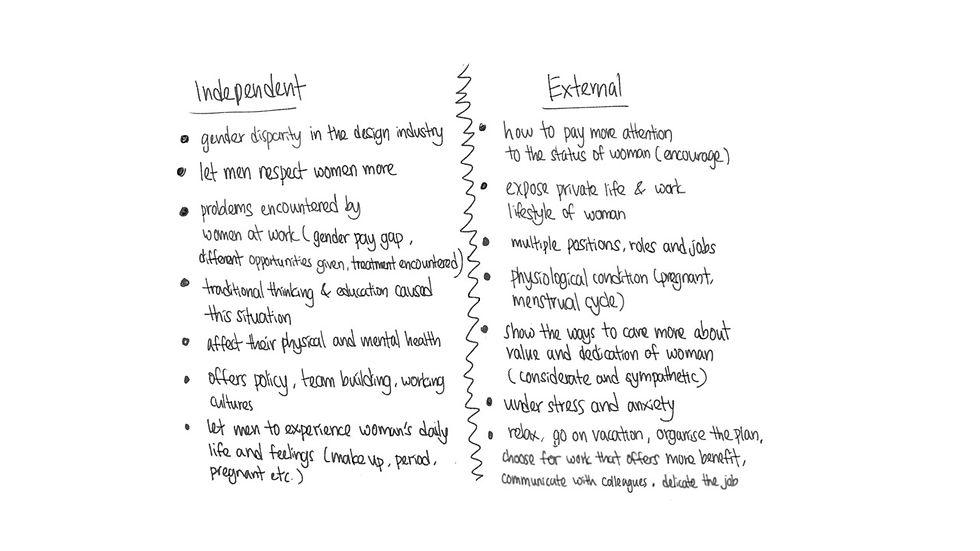 Independent
• gender disparity in the design industry
• let men respect women more
• problems encountered by
women at work (gender pay gap,
different opportunities given, treatment encountered)
• traditional thinking & education caused
this situation
• affect their physical and mental health
• offers policy, team building, working
cultures
• let men to experience woman's daily
life and feelings (make up, period,
pregnant etc.)
External
• how to pay more attention
to the status of woman (encourage)
• expose private life & work
lifestyle of woman
• multiple positions, roles and jobs
• physiological condition (pregnant,
menstrual cycle)
• show the ways to care more about
value and dedication of woman
(considerate and sympathetic)
• under stress and anxiety
• relax, go on vacation, organise the plan,
choose for work that offers more benefit,
communicate with colleagues, delicate the job